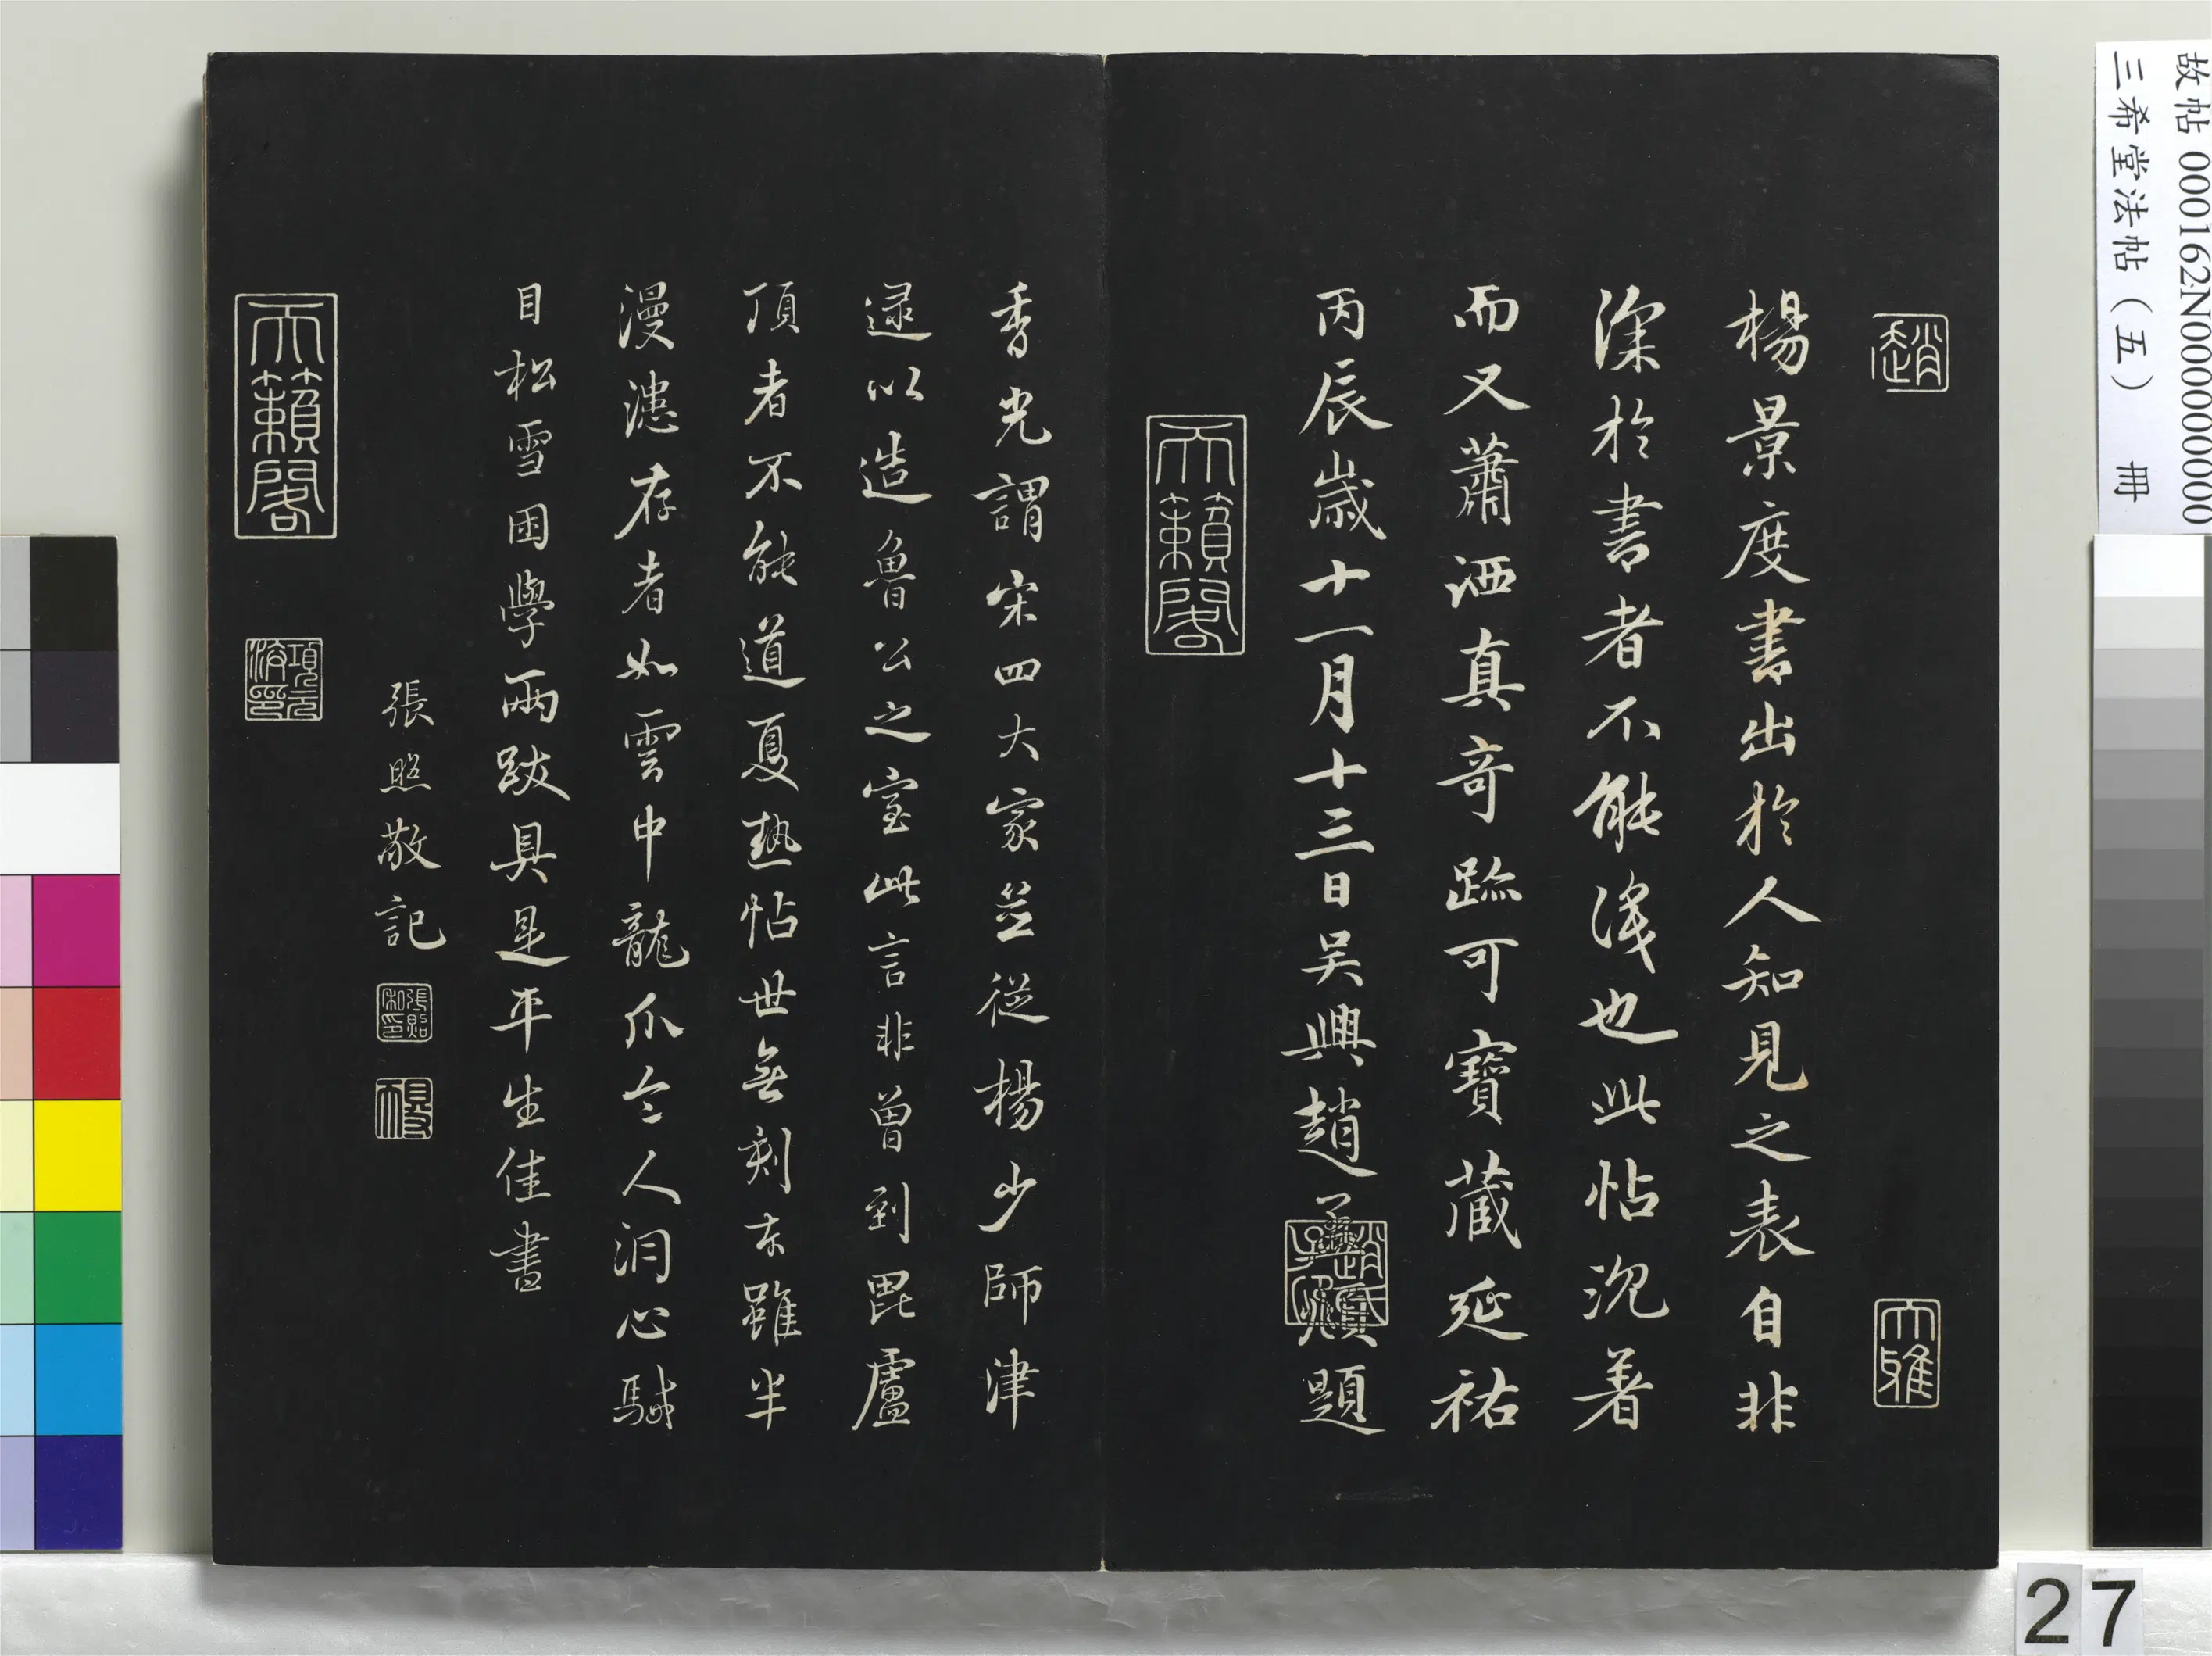 故帖 000162N000000000
三希堂法帖（五） 冊
趙
大雅
楊景度書出於人知見之表自非
深於書者不能淺也此帖沉著
而又蕭洒真奇跡可寶藏延祐
丙辰歲十一月十三日吳興趙孟頫題
趙氏子昂
天籟閣
香光謂宋四大家並從楊少師津
逮以造魯公之室此言非曾到毘盧
頂者不能道夏熱帖世無刻本雖半
漫漶存者如雲中龍爪令人洞心駴
目松雪困學兩跋具是平生佳書
張照敬記
天籟閣
項元汴印
27